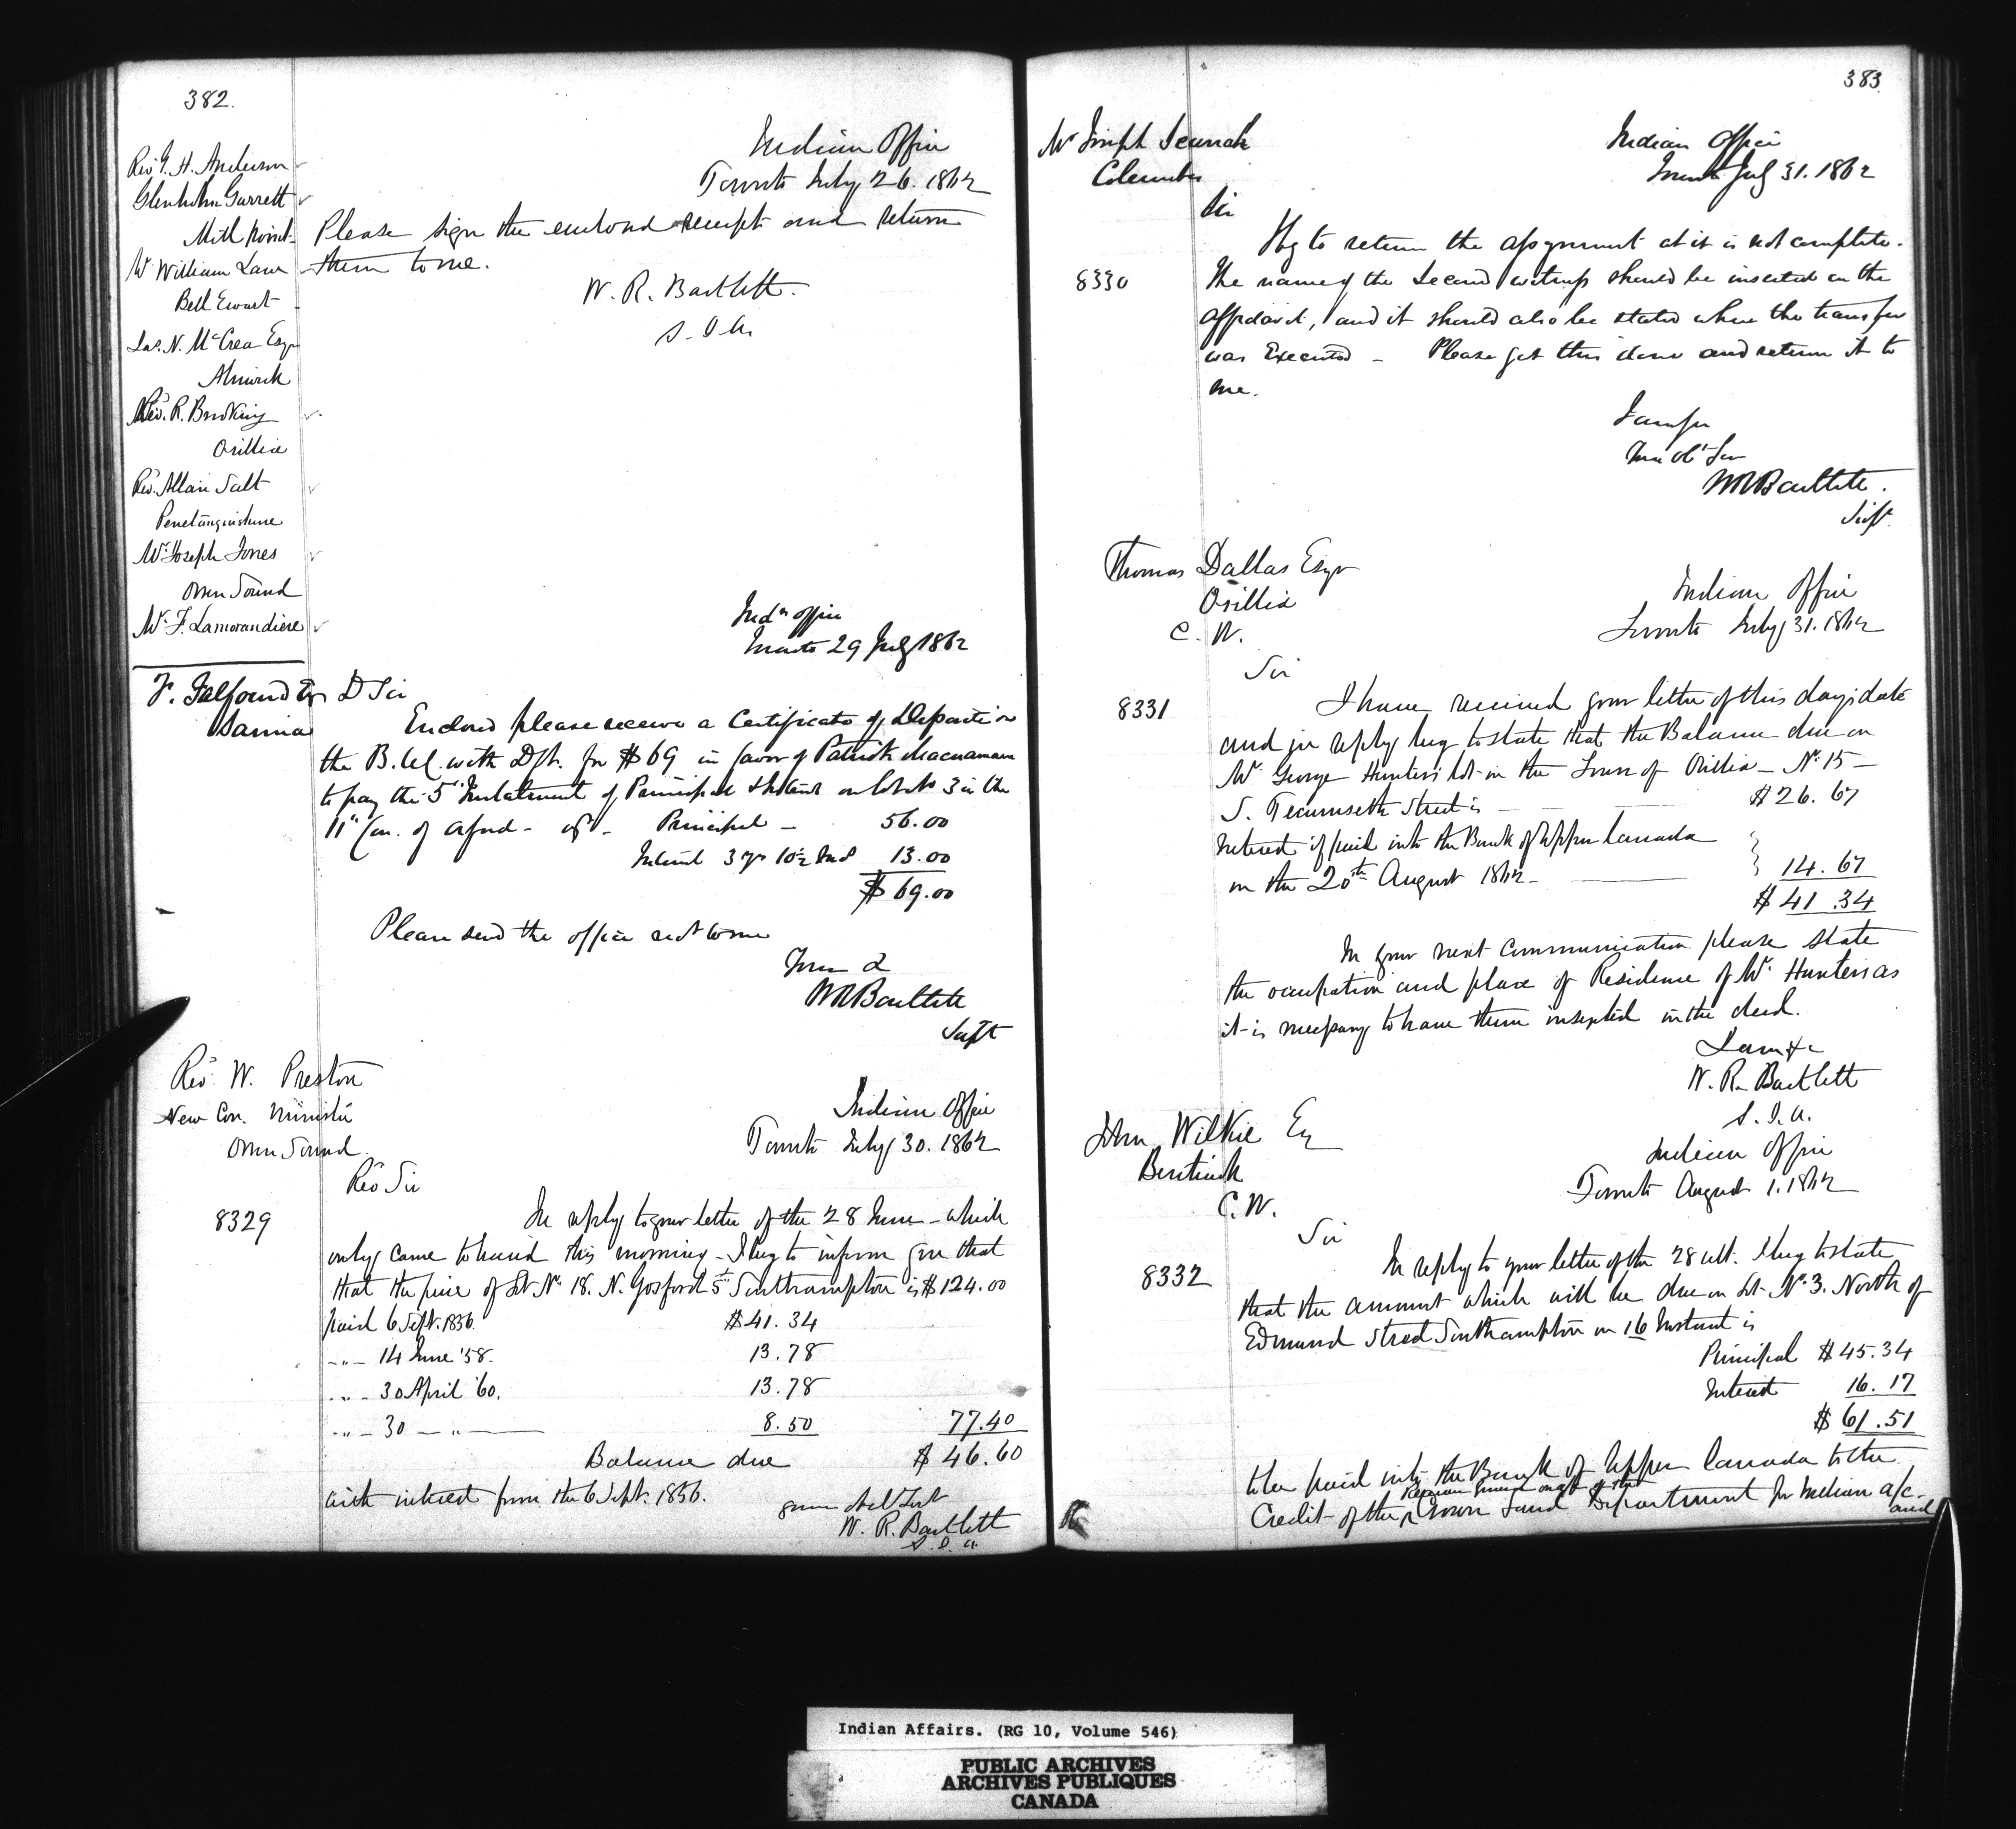 382.
Indian Office
Toronto July 26. 1862
Revd G. H. Anderson
Glenholm Garrett
Mill Point
Mr William Law
Bell Ewart
Jas. N. McCrea Esqr
Alnwick
Revd. R. Brooking
Orillia
Revd. Allan Salt
Penetanguishene
Mr. Joseph Jones
Owen Sound
Mr. F. Lamorandiere
Please sign the enclosed receipt and return
them to me.
W. R. Bartlett.
S. I. A.
Indn office
Toronto 29 July 1862
F. Talfourd Esqr
Sarnia
D Sir
Enclosed please receive a Certificate of Deposit in
the B. U C. with Dpt. for $69 in favor of Patrick Macnamara
to pay the 5th Instalment of Principal & Interest on lot No 3 in the
11th Con. of - Principal - 56.00
Interest 3 yrs 10½ 13.00
$69.00
Please send the office to me
W R Bartlett
Supt
Revd W. Preston
New Con. Minister
Owen Sound.
Indian Office
Toronto July 30. 1862
Revd Sir
8329
In reply to your letter of the 28 June - which
only came to hand this morning - I beg to inform you that
that the price of Lot No 18. N. Gosford St Southampton is $124.00
paid 6 Sept. 1856. $41.34
-"- 14 June '58. 13.78
-"- 30 April '60. 13.78
-"- 30 -"- 8.50 77.40
Balance due $46.60
with interest from the 6 Sept. 1856.
W. R. Bartlett
S. I. A.
383
Mr Joseph
Columbus
Indian Office
Toronto July 31. 1862
Sir
8330
I beg to return the assignment as it is not complete.
The name of the second witness should be inserted in the
affidavit, and it should also be stated where the transfer
was Executed - Please get this done and return it to
me.
I am Sir
Your Obt Ser
W R Bartlett.
Supt.
Thomas Dallas Esqr
Orillia
C. W.
Indian Office
Toronto July 31. 1862
Sir
8331
I have received your letter of this days date
and in reply beg to state that the Balance due on
Mr. George Hunter's lot in the Town of Orillia - No. 15 -
S. Tecumseth Street is $26.67
Interest if paid into the Bank of Upper Canada
on the 20th August 1862 - 14.67
$41.34
In your next communication please state
the occupation and place of Residence of Mr. Hunter as
it is necessary to have them inserted in the deed.
I am &c
W. R. Bartlett
S. I. A.
John Wilkie Esq
Bentinck
C. W.
Indian Office
Toronto August 1. 1862
Sir
8332
In reply to your letter of the 28 ult. I beg to state
that the amount which will be due on Lot No. 3. North of
Edmund Street Southampton on 16 Instant is
Principal $45.34
Interest 16.17
$61.51
to be paid into the Bank of Upper Canada to the
Receiver General on a/c of the
Credit of the Crown Land Department for Indian a/c -
and
Indian Affairs. (RG 10, Volume 546)
PUBLIC ARCHIVES
ARCHIVES PUBLIQUES
CANADA